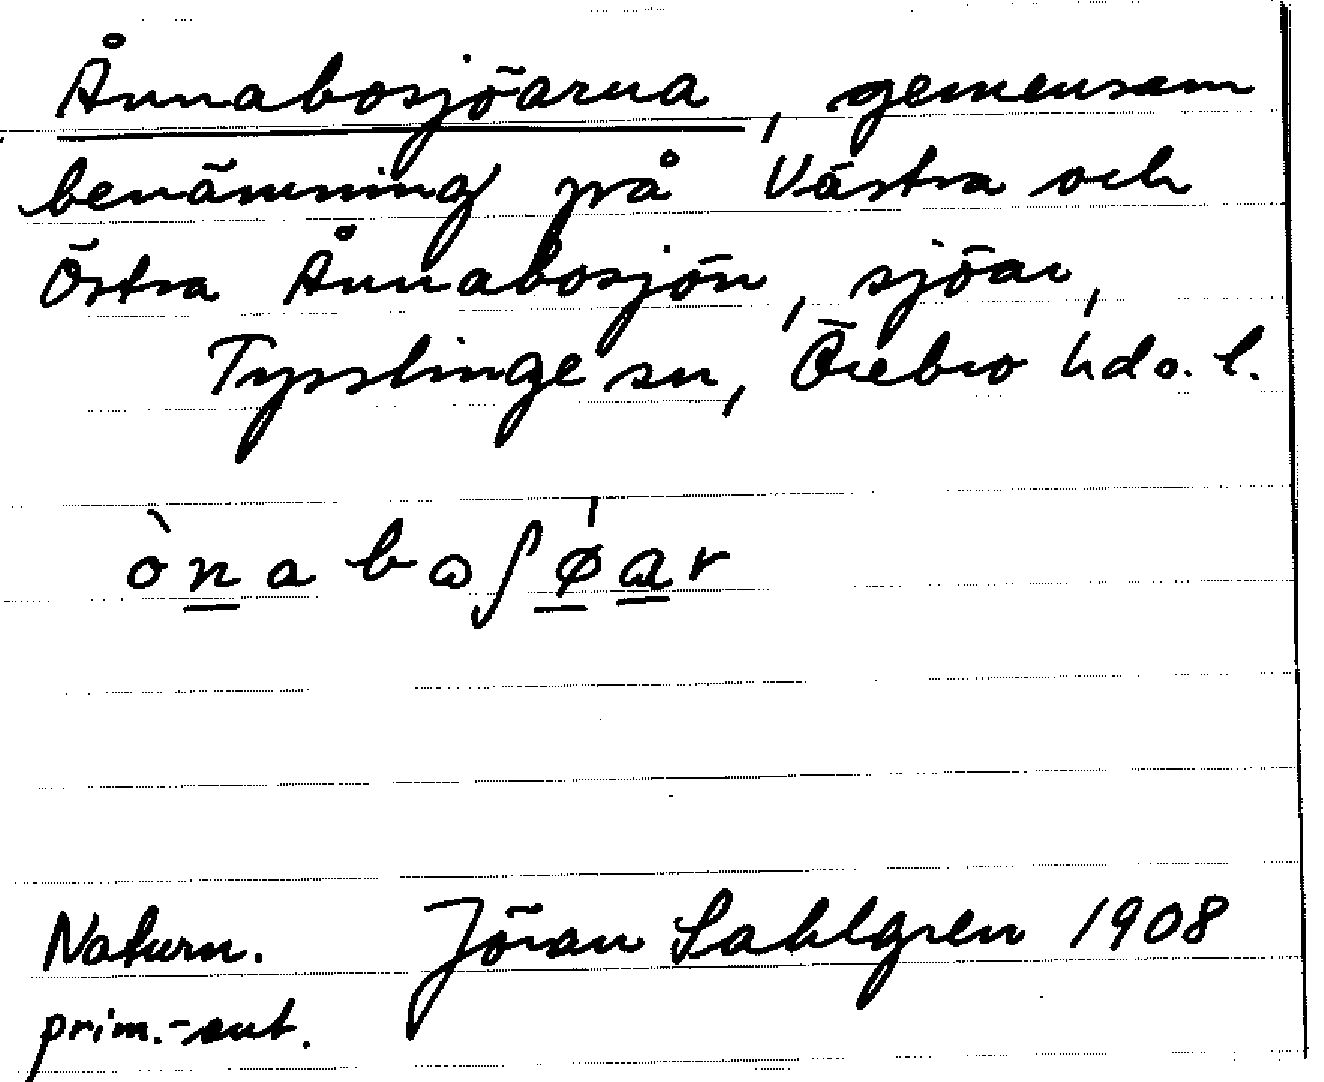 Ånnabosjöarna, gemensam
benämning på Västra och
Östra Ånnabosjön, sjöar,
Tysslinge sn, Örebro hds. l.
ònabɷʃǿar
Naturn. Jöran Sahlgren 1908
prim.-ant.